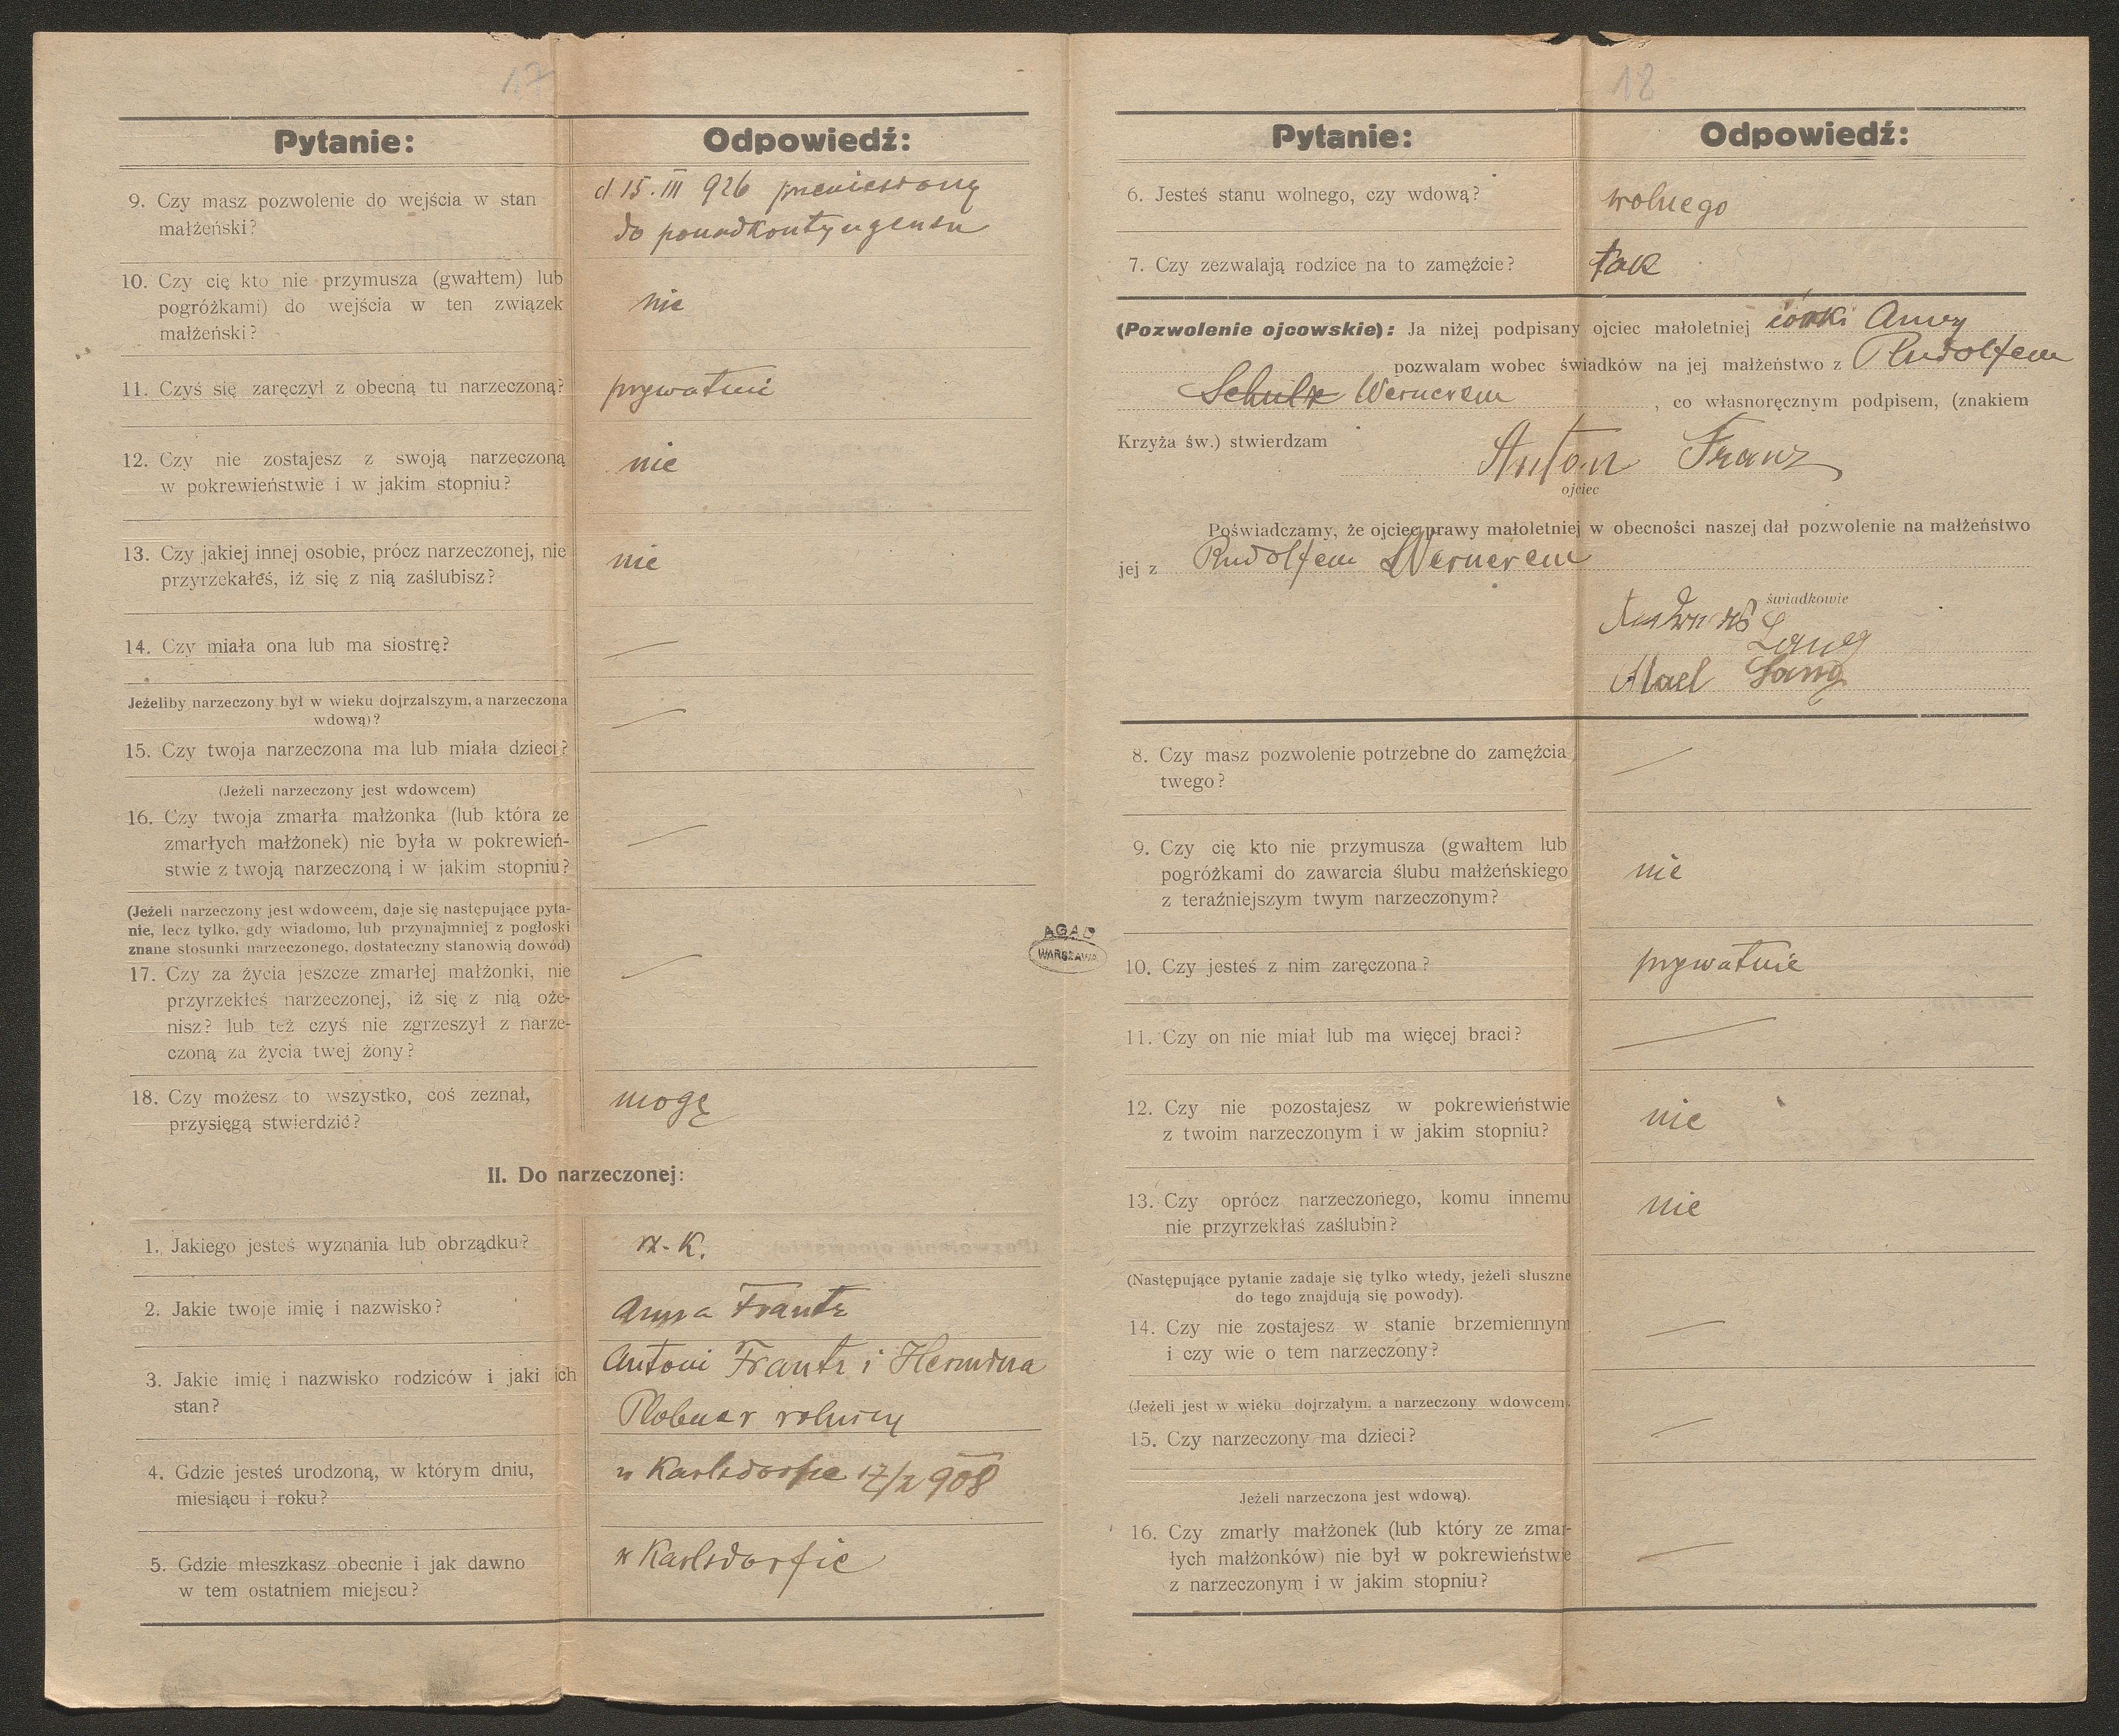 17
Pytanie:
Odpowiedź:
9. Czy masz pozwolenie do wejścia w stan
małżeński?
d. 15. III 926 przeniesiony
do ponadkontyngensu
10. Czy cię kto nie przymusza (gwałtem) lub
pogróżkami) do wejścia w ten związek
małżeński?
nie
11. Czyś się zaręczył z obecną tu narzeczoną?
prywatnie
12. Czy nie zostajesz z swoją narzeczoną
w pokrewieństwie i w jakim stopniu?
nie
13. Czy jakiej innej osobie, prócz narzeczonej, nie
przyrzekałeś, iż się z nią zaślubisz?
nie
14. Czy miała ona lub ma siostrę?
—
Jeżeliby narzeczony był w wieku dojrzalszym, a narzeczona
wdową)?
—
15. Czy twoja narzeczona ma lub miała dzieci?
(Jeżeli narzeczony jest wdowcem)
16. Czy twoja zmarła małżonka (lub która ze
zmarłych małżonek) nie była w pokrewień-
stwie z twoją narzeczoną i w jakim stopniu?
—
(Jeżeli narzeczony jest wdowcem, daje się następujące pyta-
nie, lecz tylko, gdy wiadomo, lub przynajmniej z pogłoski
znane stosunki narzeczonego, dostateczny stanowią dowód)
17. Czy za życia jeszcze zmarłej małżonki, nie
przyrzekłeś narzeczonej, iż się z nią oże-
nisz? lub też czyś nie zgrzeszył z narze-
czoną za życia twej żony?
—
18. Czy możesz to wszystko, coś zeznał,
przysięgą stwierdzić?
mogę
II. Do narzeczonej:
1. Jakiego jesteś wyznania lub obrządku?
rz. K.
2. Jakie twoje imię i nazwisko?
Anna Frantz
3. Jakie imię i nazwisko rodziców i jaki ich
stan?
Antoni Frantz i Hermina
rolnicy
4. Gdzie jesteś urodzoną, w którym dniu,
miesiącu i roku?
w Karlsdorfie 17/2 908
5. Gdzie mieszkasz obecnie i jak dawno
w tem ostatniem miejscu?
w Karlsdorfie
AGAD
WARSZAWA
18
Pytanie:
Odpowiedź:
6. Jesteś stanu wolnego, czy wdową?
wolnego
7. Czy zezwalają rodzice na to zamęźcie?
tak
(Pozwolenie ojcowskie): Ja niżej podpisany ojciec małoletniej córki Anny
pozwalam wobec świadków na jej małżeństwo z Rudolfem
Schulz Wernerem, co własnoręcznym podpisem, (znakiem
Krzyża św.) stwierdzam
Anton Franz
ojciec
Poświadczamy, że ojciec prawy małoletniej w obecności naszej dał pozwolenie na małżeństwo
jej z Rudolfem Wernerem
świadkowie
Lang
Lang
8. Czy masz pozwolenie potrzebne do zamęźcia
twego?
—
9. Czy cię kto nie przymusza (gwałtem lub
pogróżkami do zawarcia ślubu małżeńskiego
z teraźniejszym twym narzeczonym?
nie
10. Czy jesteś z nim zaręczona?
prywatnie
11. Czy on nie miał lub ma więcej braci?
—
12. Czy nie pozostajesz w pokrewieństwie
z twoim narzeczonym i w jakim stopniu?
nie
13. Czy oprócz narzeczonego, komu innemu
nie przyrzekłaś zaślubin?
nie
(Następujące pytanie zadaje się tylko wtedy, jeżeli słuszne
do tego znajdują się powody).
14. Czy nie zostajesz w stanie brzemiennym
i czy wie o tem narzeczony?
—
(Jeżeli jest w wieku dojrzałym, a narzeczony wdowcem).
15. Czy narzeczony ma dzieci?
—
Jeżeli narzeczona jest wdową).
16. Czy zmarły małżonek (lub który ze zmar-
łych małżonków) nie był w pokrewieństwie
z narzeczonym i w jakim stopniu?
—